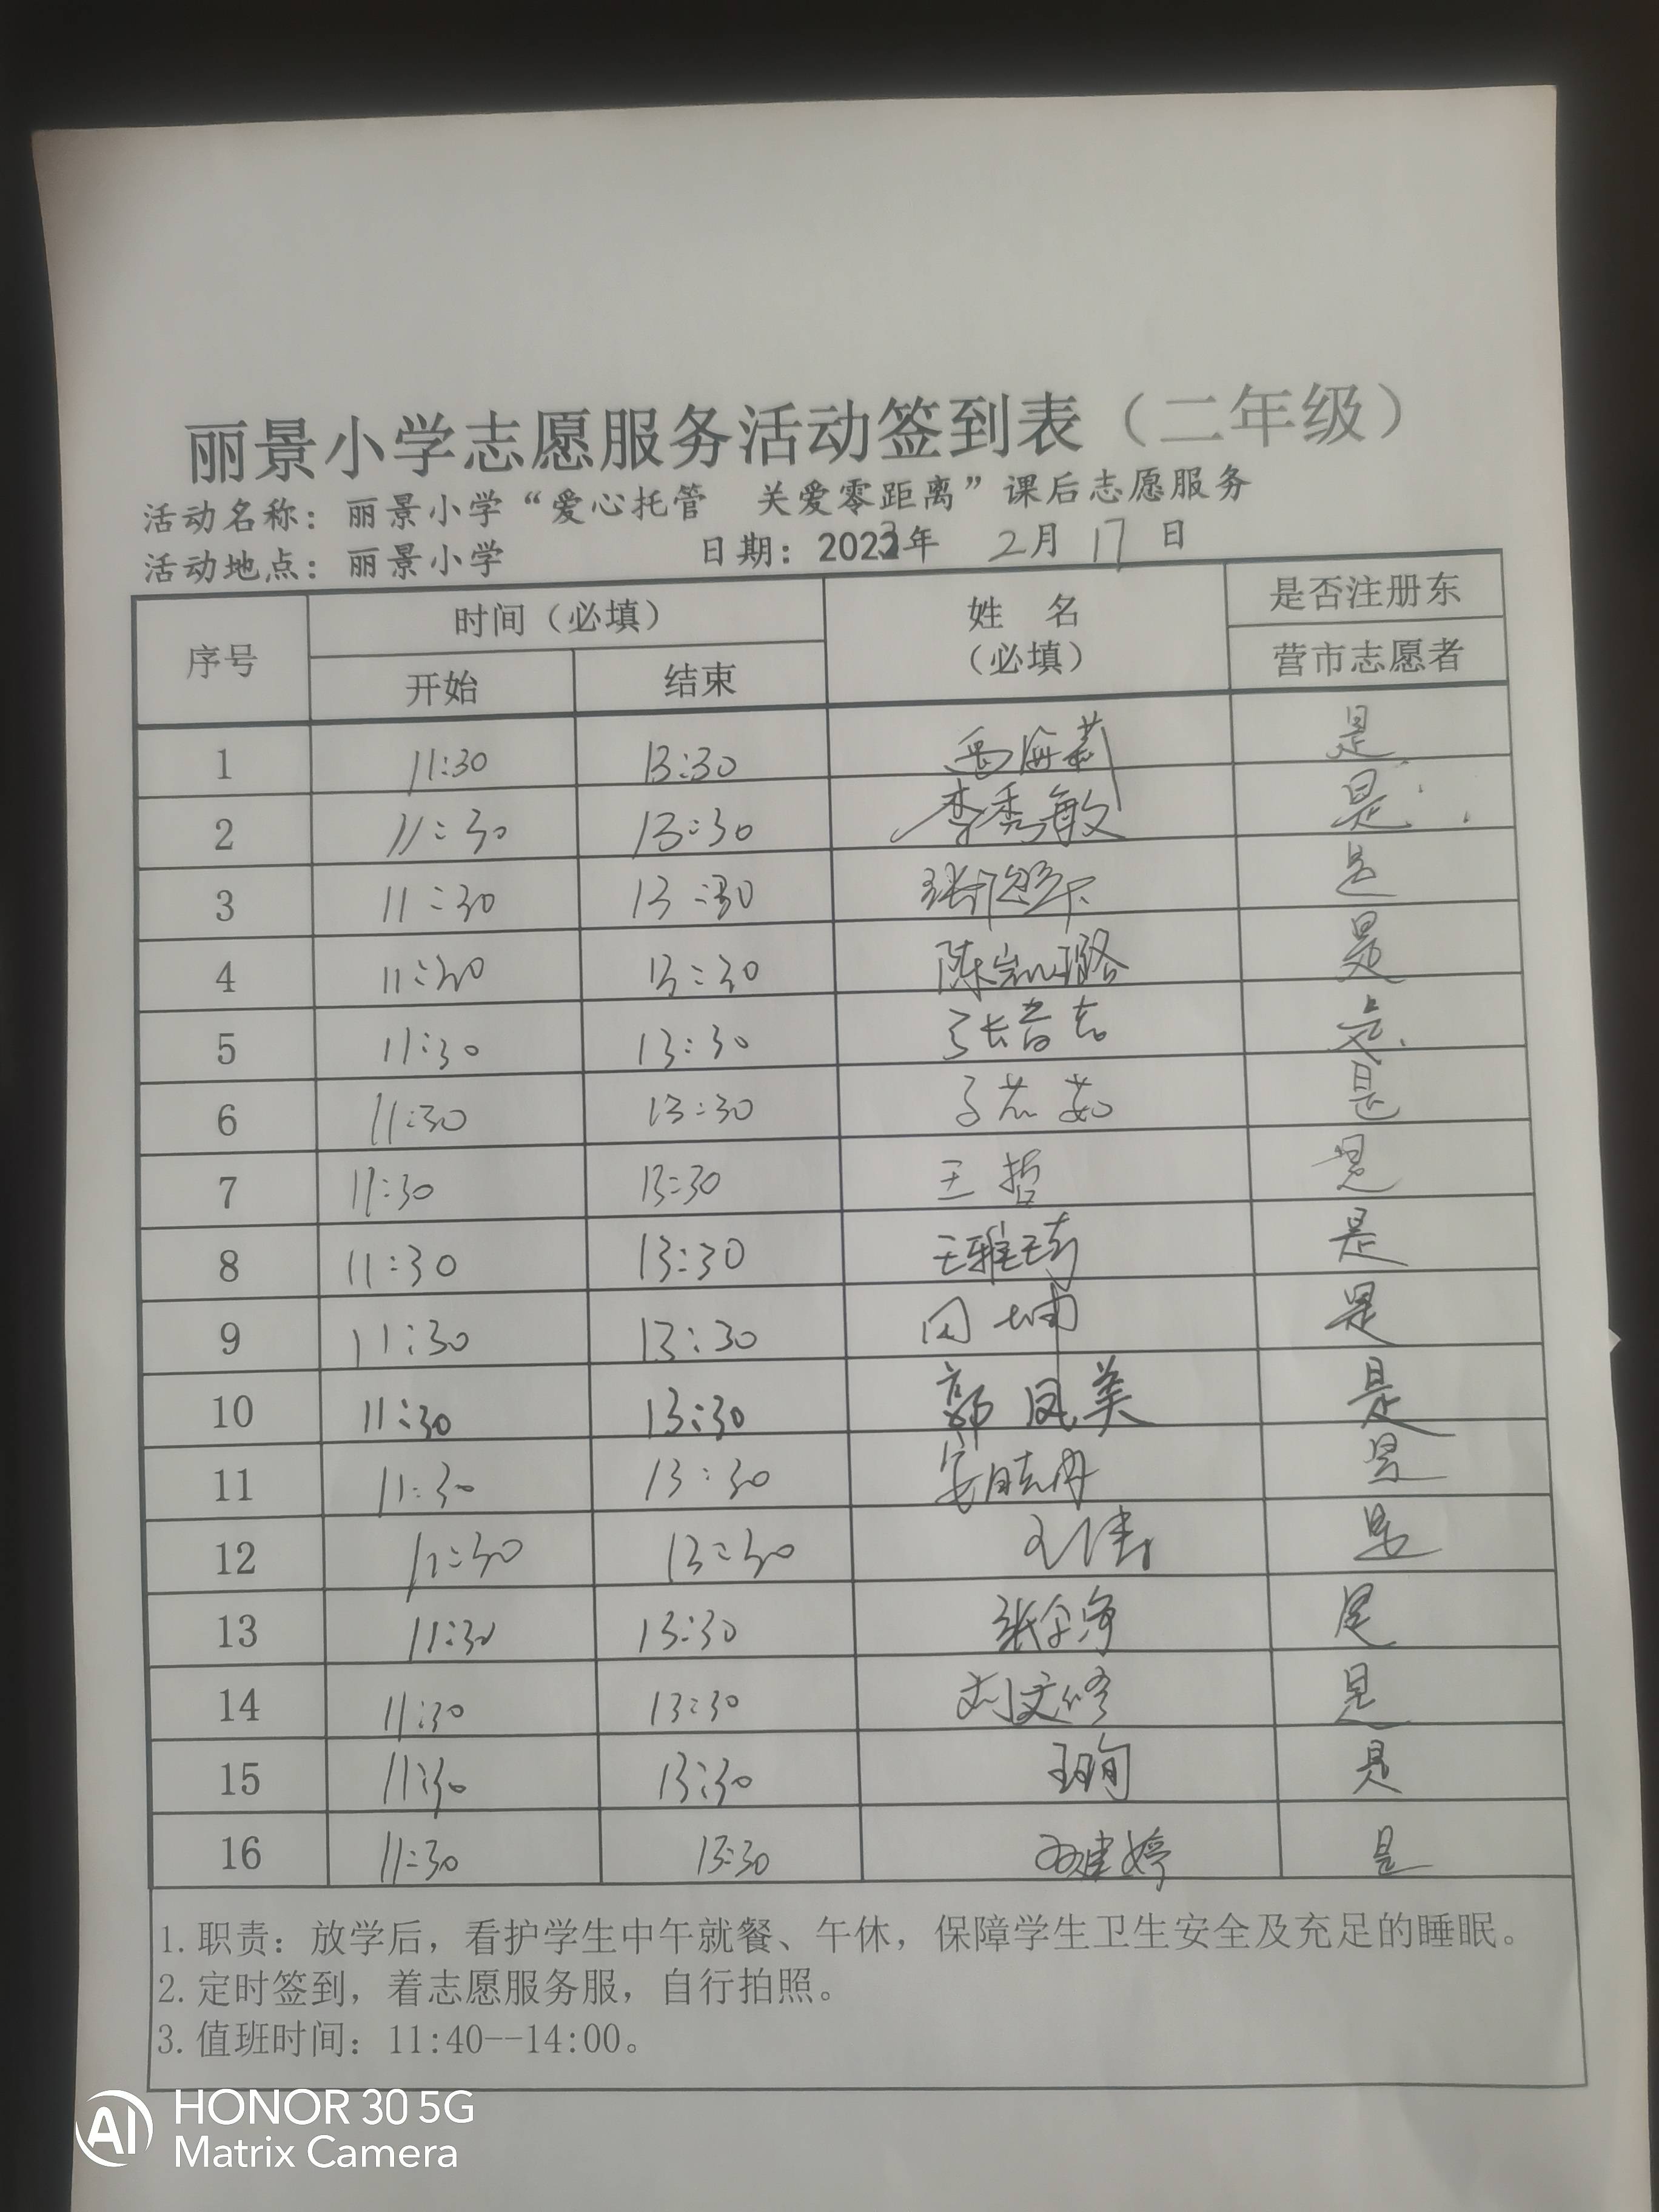 丽景小学志愿服务活动签到表（二年级）
活动名称：丽景小学“爱心托管 关爱零距离”课后志愿服务
活动地点：丽景小学 日期：2023年 2月 17日
序号 时间（必填） 姓 名（必填） 是否注册东营市志愿者
开始 结束
1 11:30 13:30 是
2 11:30 13:30 李秀敏 是
3 11:30 13:30 是
4 11:30 13:30 陈凯璐 是
5 11:30 13:30 是
6 11:30 13:30 是
7 11:30 13:30 王哲 是
8 11:30 13:30 王雅琦 是
9 11:30 13:30 是
10 11:30 13:30 郭凤美 是
11 11:30 13:30 是
12 11:30 13:30 王倩 是
13 11:30 13:30 是
14 11:30 13:30 刘文修 是
15 11:30 13:30 王珣 是
16 11:30 13:30 是
1.职责：放学后，看护学生中午就餐、午休，保障学生卫生安全及充足的睡眠。
2.定时签到，着志愿服务服，自行拍照。
3.值班时间：11:40--14:00。
AI HONOR 30 5G
Matrix Camera